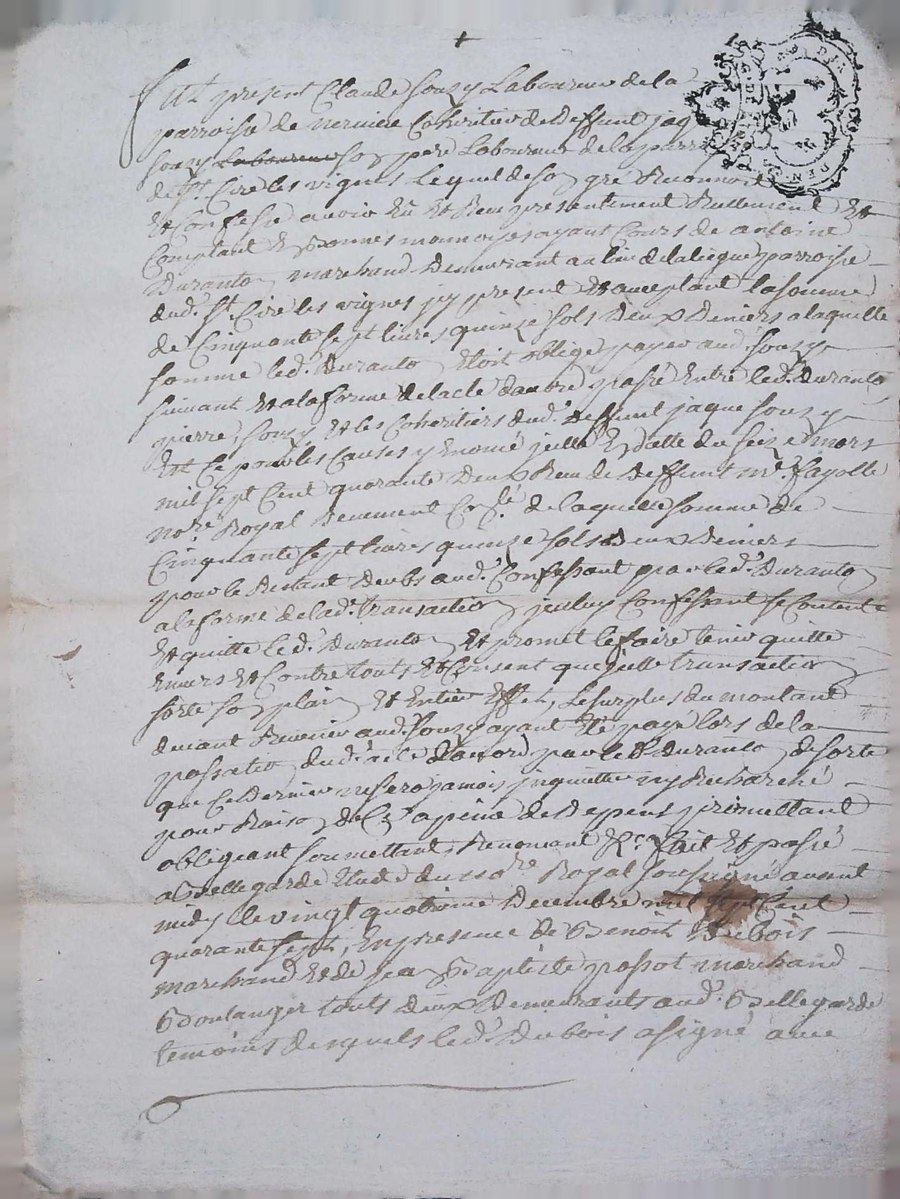 Fut present Claude Souzy Laboureur de la
parroisse de nervieu Coheritier de deffunt jaq
Souzy Laboureur son pere Laboureur de la parr
de St. Cire les vignes Lequel de son gré Reconnoit
Et Confesse avoir Eû Et Reçu presentement Reellement Et
Comptant En Bonnes monnoyes ayant Cours de antoine
Duranton marchand Demeurant au lieu de parroisse
dud. St. Cire les vignes jcy present Et acceptant la somme
de Cinquante sept livres quinze sols Deux Deniers a laquelle
somme led. Duranton Etoit obligé payer aud. Souzy
suivant Et a la forme de lacte passé Entre led. Duranton
pierre Souzy Et les Coheritiers dud. deffunt jaque Souzy
Et Ce pour les Causes y Enoncé jcelle En datte du seize mars
mil sept Cent quarante Deux Reçu de Deffunt me. fayolle
nore. Royal Deuement de laquelle somme de
Cinquante sept livres quinze sols Deux Deniers
pour le Restant Confessant par led. Duranton
a la forme de lad. transaction jceluy Confessant se Contente
Et quitte led. Duranton Et promet le faire tenir quitte
Envers Et Contre touts Et Consent que jcelle transaction
sorte son plain Et Entier Effet, Le surplus du montant
devant Revenir aud. Souzy ayant Eté payé lors de la
passation dud. acte par led. Duranton, de sorte
que Ce Dernier ne sera jamais jnquietté ny Recherché
pour Raison de Ce a peine de Depens promettant
obligeant soumettant, Renonçant &c. fait Et passé
a Bellegarde Etude du nore. Royal soussigné avant
midy le vingt quatrieme Decembre mil sept Cent
quarante sept, En presence de Benoit Dubois
marchand Et de jean Baptiste passot marchand
Boulanger touts deux Demeurants aud. Bellegarde
temoins desquels led. Dubois a signé avec